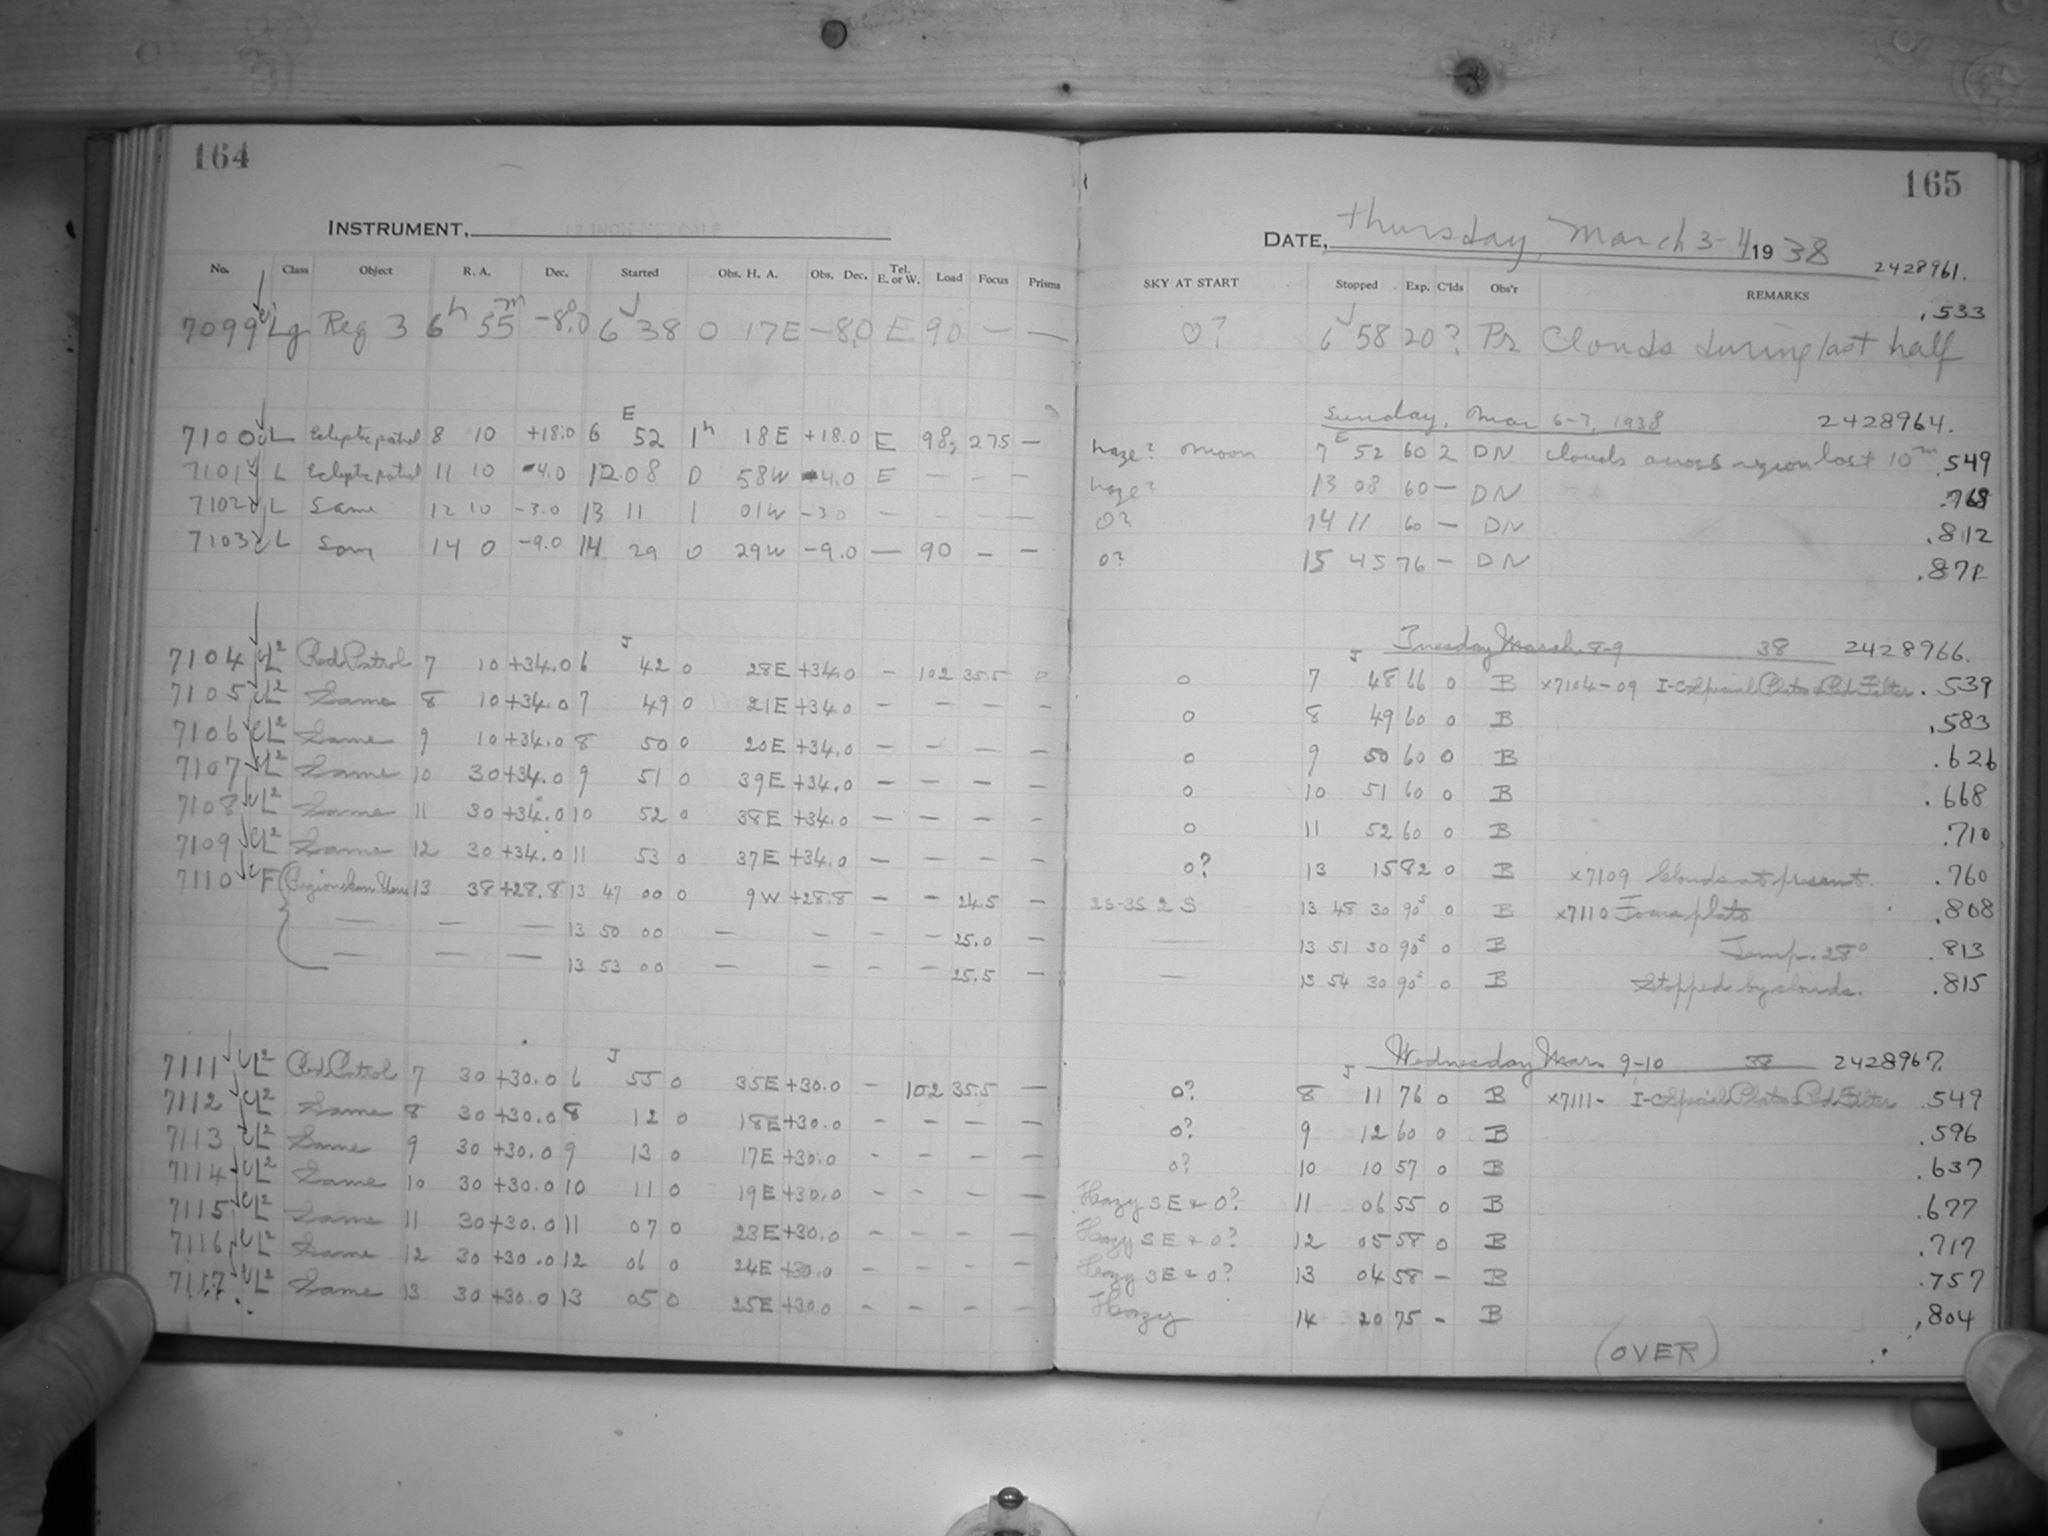 164
INSTRUMENT,
No. Class Object R. A. Dec. Started Obs. H. A. Obs. Dec. Tel. E. or W. Load Focus Prisms
7099 Lg Reg 3 6h 55m -8.0 6 J 38 0 17E -8.0 E 90 — —
7100 L Ecliptic patrol 8 10 +18.0 6 E 52 1h 18E +18.0 E 98, 275 —
7101 L Ecliptic patrol 11 10 -4.0 12 08 0 58W -4.0 E — — —
7102 L Same 12 10 -3.0 13 11 1 01W -3.0 — — — —
7103 L Same 14 0 -9.0 14 29 0 29W -9.0 — 90 — —
7104 L² Red Patrol 7 10 +34.0 6 J 42 0 28E +34.0 — 102 35.5
7105 L² Same 8 10 +34.0 7 49 0 21E +34.0 — — — —
7106 L² Same 9 10 +34.0 8 50 0 20E +34.0 — — — —
7107 L² Same 10 30 +34.0 9 51 0 39E +34.0 — — — —
7108 L² Same 11 30 +34.0 10 52 0 38E +34.0 — — — —
7109 L² Same 12 30 +34.0 11 53 0 37E +34.0 — — — —
7110 F 13 38 +28.8 13 47 00 0 9W +28.8 — — 24.5 —
— — — 13 50 00 — — — — 25.0 —
— — — 13 53 00 — — — — 25.5 —
7111 L² Red Patrol 7 30 +30.0 6 J 55 0 35E +30.0 — 102 35.5 —
7112 L² Same 8 30 +30.0 8 12 0 18E +30.0 — — — —
7113 L² Same 9 30 +30.0 9 13 0 17E +30.0 — — — —
7114 L² Same 10 30 +30.0 10 11 0 19E +30.0 — — — —
7115 L² Same 11 30 +30.0 11 07 0 23E +30.0 — — — —
7116 L² Same 12 30 +30.0 12 06 0 24E +30.0 — — — —
7117 L² Same 13 30 +30.0 13 05 0 25E +30.0 — — — —
165
DATE, Thursday, March 3-4 1938
2428961.
SKY AT START Stopped Exp. C'lds Obs'r REMARKS
.533
0? 6 J 58 20 ? Pz Clouds during last half
Sunday, Mar 6-7, 1938 2428964.
haze? moon 7 E 52 60 2 DN Clouds across region last 10m .549
haze? 13 08 60 — DN .768
0? 14 11 60 — DN .812
0? 15 45 76 — DN .872
Tuesday March 8-9 38 2428966.
0 7 J 48 66 0 B x7104-09 I-C Special Plate & Red Filter .539
0 8 49 60 0 B .583
0 9 50 60 0 B .626
0 10 51 60 0 B .668
0 11 52 60 0 B .710
0? 13 15 82 0 B x7109 Clouds at present. .760
25-35 2 S 13 48 30 90s 0 B x7110 Focus plate .808
— 13 51 30 90s 0 B Temp. 28° .813
— 13 54 30 90s 0 B Stopped by clouds. .815
Wednesday Mar. 9-10 38 2428967.
0? 8 J 11 76 0 B x7111- I-C Special Plate & Red Filter .549
0? 9 12 60 0 B .596
0? 10 10 57 0 B .637
Hazy SE & 0? 11 06 55 0 B .677
Hazy SE & 0? 12 05 58 0 B .717
Hazy SE & 0? 13 04 58 — B .757
Hazy 14 20 75 — B .804
(OVER)